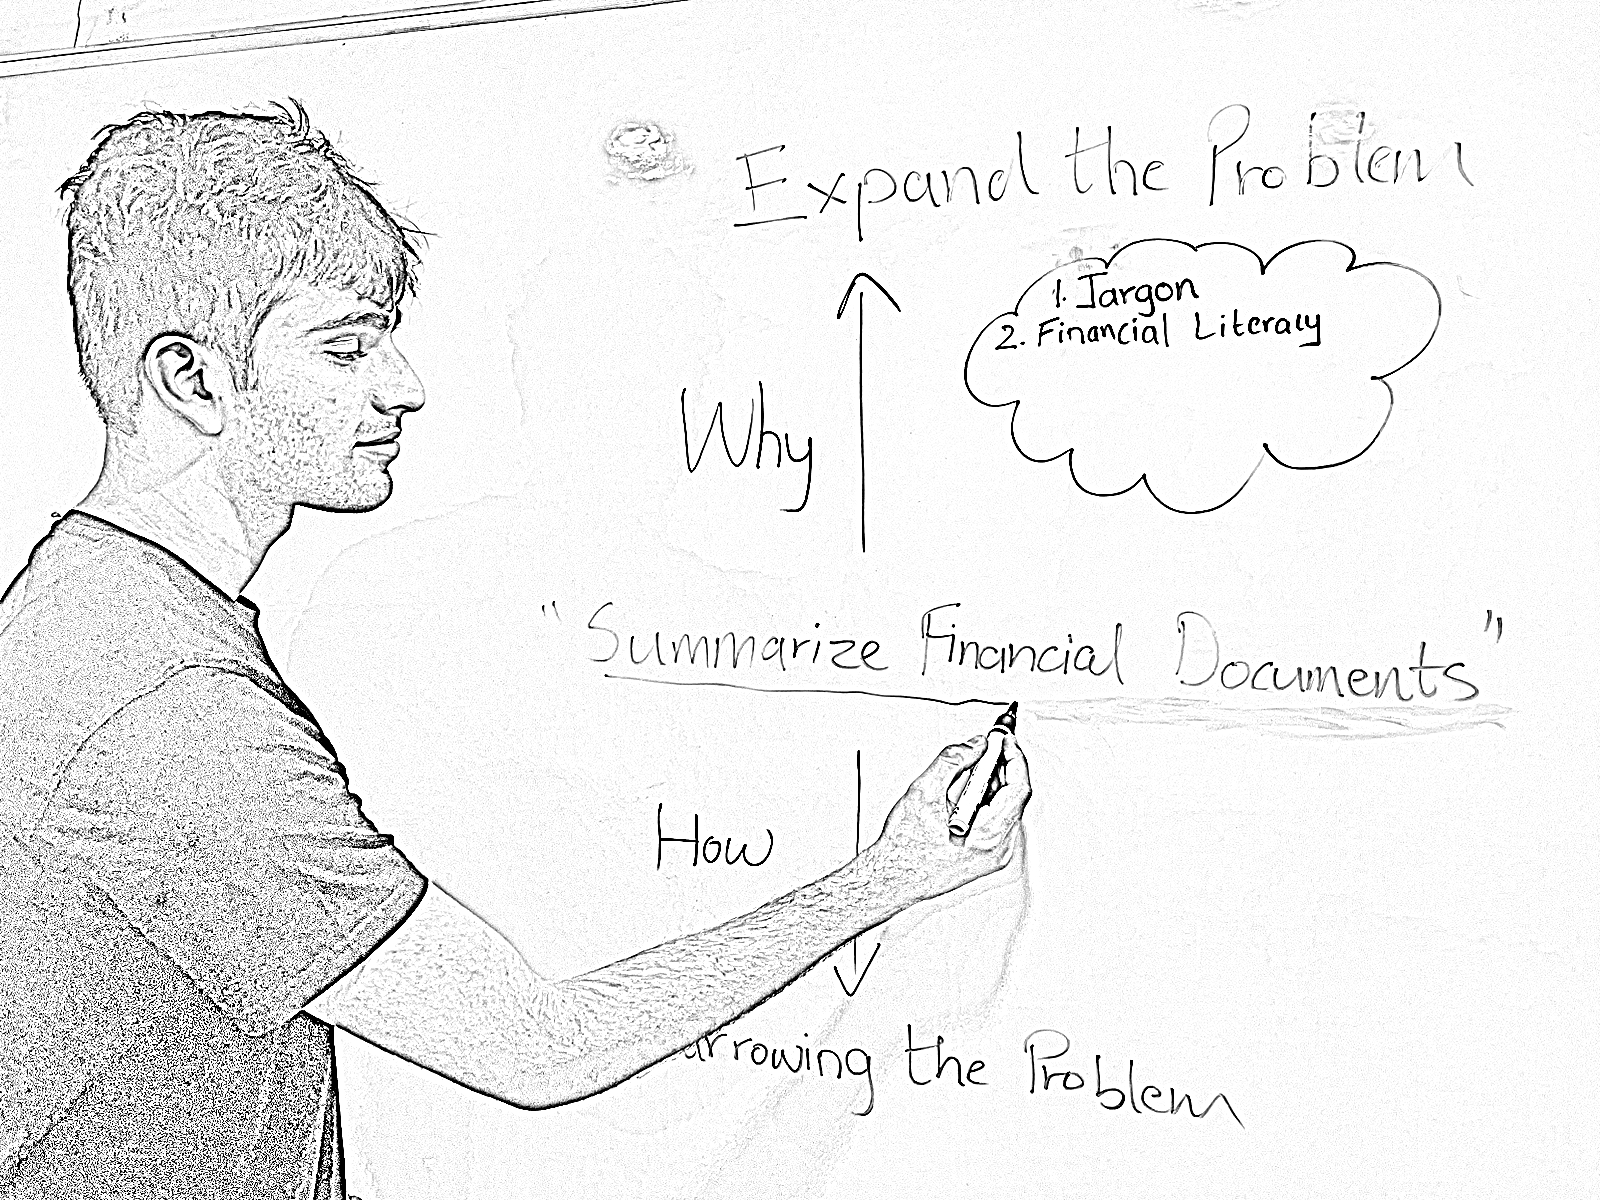 Expand the Problem
1. Jargon
2. Financial Literacy
Why
"Summarize Financial Documents"
How
the Problem